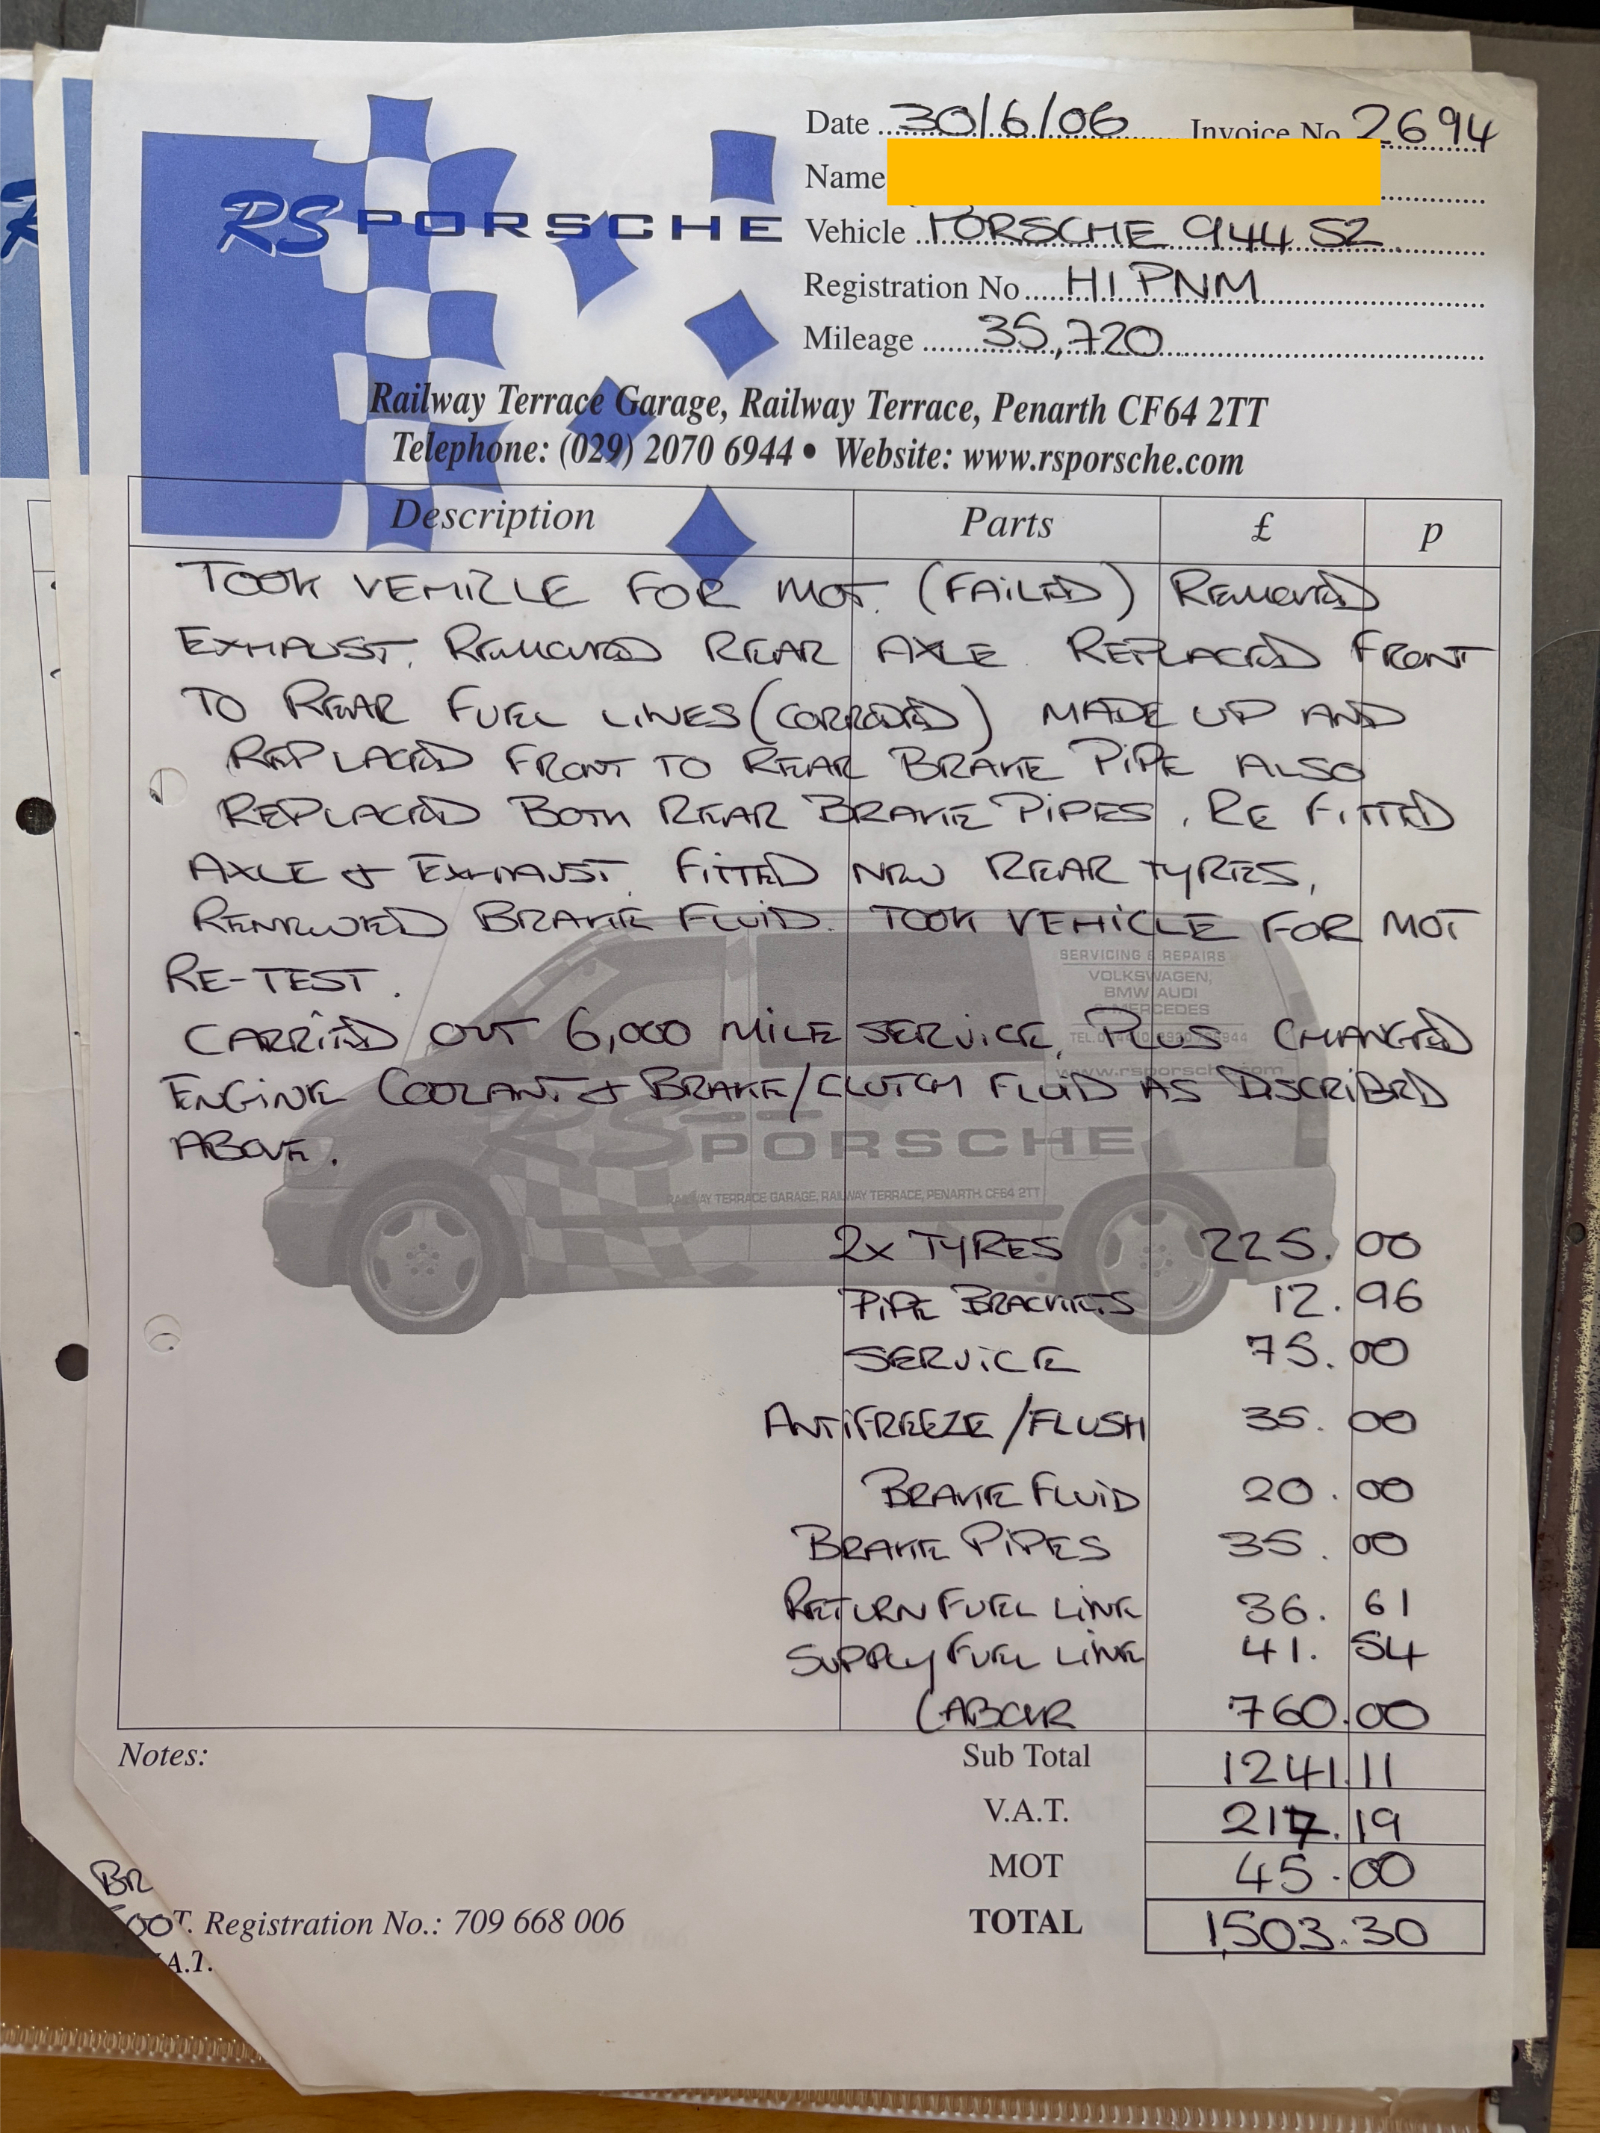 Date 30/6/06 Invoice No 2694
Name
RS PORSCHE
Vehicle PORSCHE 944 S2
Registration No H1 PNM
Mileage 35,720
Railway Terrace Garage, Railway Terrace, Penarth CF64 2TT
Telephone: (029) 2070 6944 • Website: www.rsporsche.com
Description Parts £ p
TOOK VEHICLE FOR MOT. (FAILED) REMOVED
EXHAUST. REMOVED REAR AXLE. REPLACED FRONT
TO REAR FUEL LINES (CORRODED) MADE UP AND
REPLACED FRONT TO REAR BRAKE PIPE ALSO
REPLACED BOTH REAR BRAKE PIPES. RE FITTED
AXLE & EXHAUST. FITTED NEW REAR TYRES,
RENEWED BRAKE FLUID. TOOK VEHICLE FOR MOT
RE-TEST.
SERVICING & REPAIRS
VOLKSWAGEN,
BMW AUDI
& MERCEDES
CARRIED OUT 6,000 MILE SERVICE. PLUS CHANGED
www.rsporsche.com
ENGINE COOLANT & BRAKE/CLUTCH FLUID AS DISCRIBED
ABOVE.
RS PORSCHE
RAILWAY TERRACE GARAGE, RAILWAY TERRACE, PENARTH. CF64 2TT
2x TYRES 225.00
PIPE BRACKETS 12.96
SERVICE 75.00
ANTIFREEZE/FLUSH 35.00
BRAKE FLUID 20.00
BRAKE PIPES 35.00
RETURN FUEL LINE 36.61
SUPPLY FUEL LINE 41.54
LABOUR 760.00
Notes: Sub Total 1241.11
V.A.T. 217.19
MOT 45.00
BR
T. Registration No.: 709 668 006 TOTAL 1503.30
A.T.